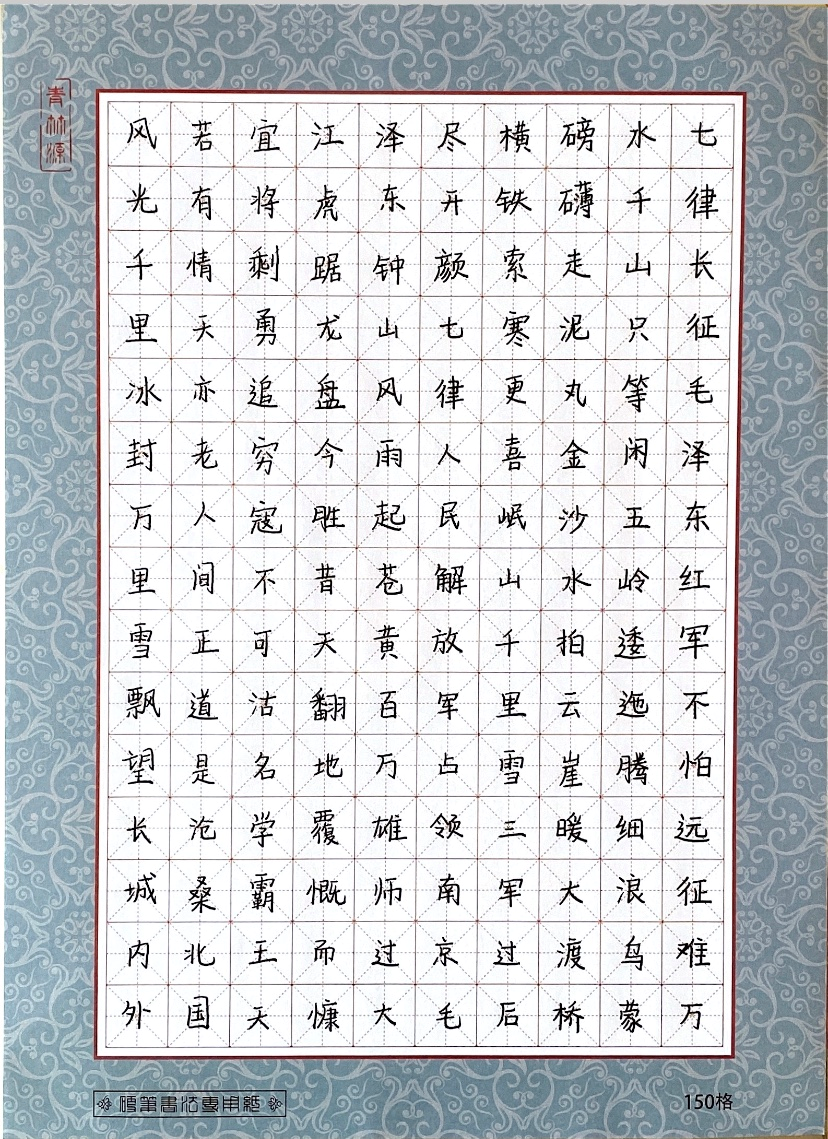 七律长征毛泽东红军不怕远征难万
水千山只等闲五岭逶迤腾细浪鸟蒙
磅礴走泥丸金沙水拍云崖暖大渡桥
横铁索寒更喜岷山千里雪三军过后
尽开颜七律人民解放军占领南京毛
泽东钟山风雨起苍黄百万雄师过大
江虎踞龙盘今胜昔天翻地覆慨而慷
宜将剩勇追穷寇不可沽名学霸王天
若有情天亦老人间正道是沧桑北国
风光千里冰封万里雪飘望长城内外
硬筆書法專用紙
150格